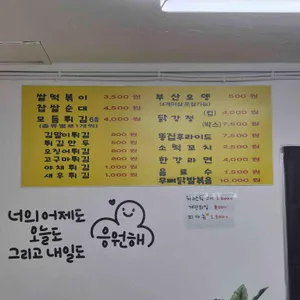 쌀떡볶이 3,500 원
찹쌀순대 4,500 원
모듬튀김6개 4,000 원
(종류별로1개씩)
김말이튀김 800 원
튀김만두 500 원
오징어튀김 800 원
고구마튀김 800 원
야채튀김 원
새우튀김 원
부산오뎅 500 원
닭강정 (컵) 4,000 원
(박스) 7,500 원
똥집후라이드 7,500 원
소떡꼬치 2,500 원
한강라면 4,000 원
음료수 1,500 원
무뼈닭발볶음 10,000 원
너의 어제도
오늘도
그리고 내일도
응원해